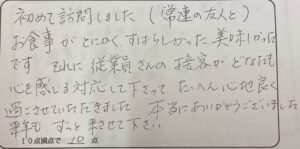 初めて訪問しました（常連の友人と）
お食事がとにかくすばらしかった 美味しかった
です。それに従業員さんの接客がどなたも
心を感じる対応して下さって たいへん心地良く
過ごさせていただきました 本当にありがとうございました
来年も ずっと 来させて下さい
10点満点で 10 点